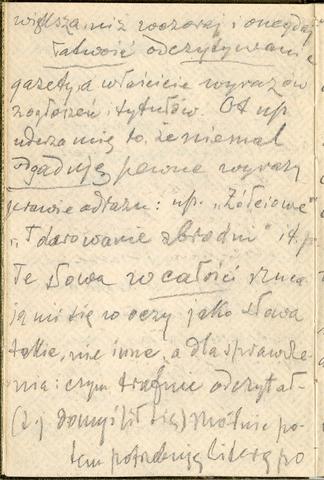 większa, niż wczoraj i onegdaj
łatwość odczytywania
gazety, a właściwie wyrazów
z ogłoszeń, tytułów. Ot np
uderza mię to, że niemal
zgaduję pewne wyrazy
prawie odrazu: np. „Żółciowe"
„Darowanie zbrodni" i t. p.
Te słowa w całości rzuca
ją mi się w oczy jako słowa
takie, nie inne, a dla sprawdze-
nia: czym trafnie odczytał-
(t.j domyślił się) możnie po-
tem potrzebuję literę po